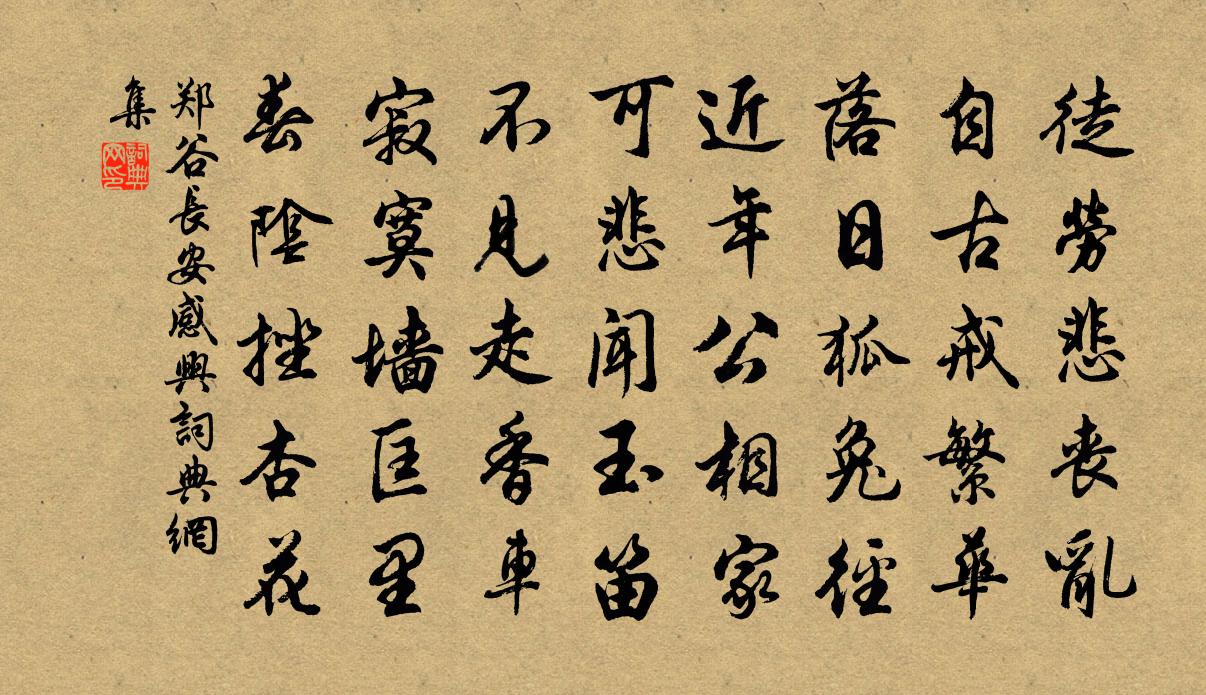 徒勞悲喪亂
自古戒繁華
落日狐兔徑
近年公相家
可悲聞玉笛
不見走香車
寂寞墙匡里
春陰挫杏花
郑谷長安感興詞典網
集
詞典网印